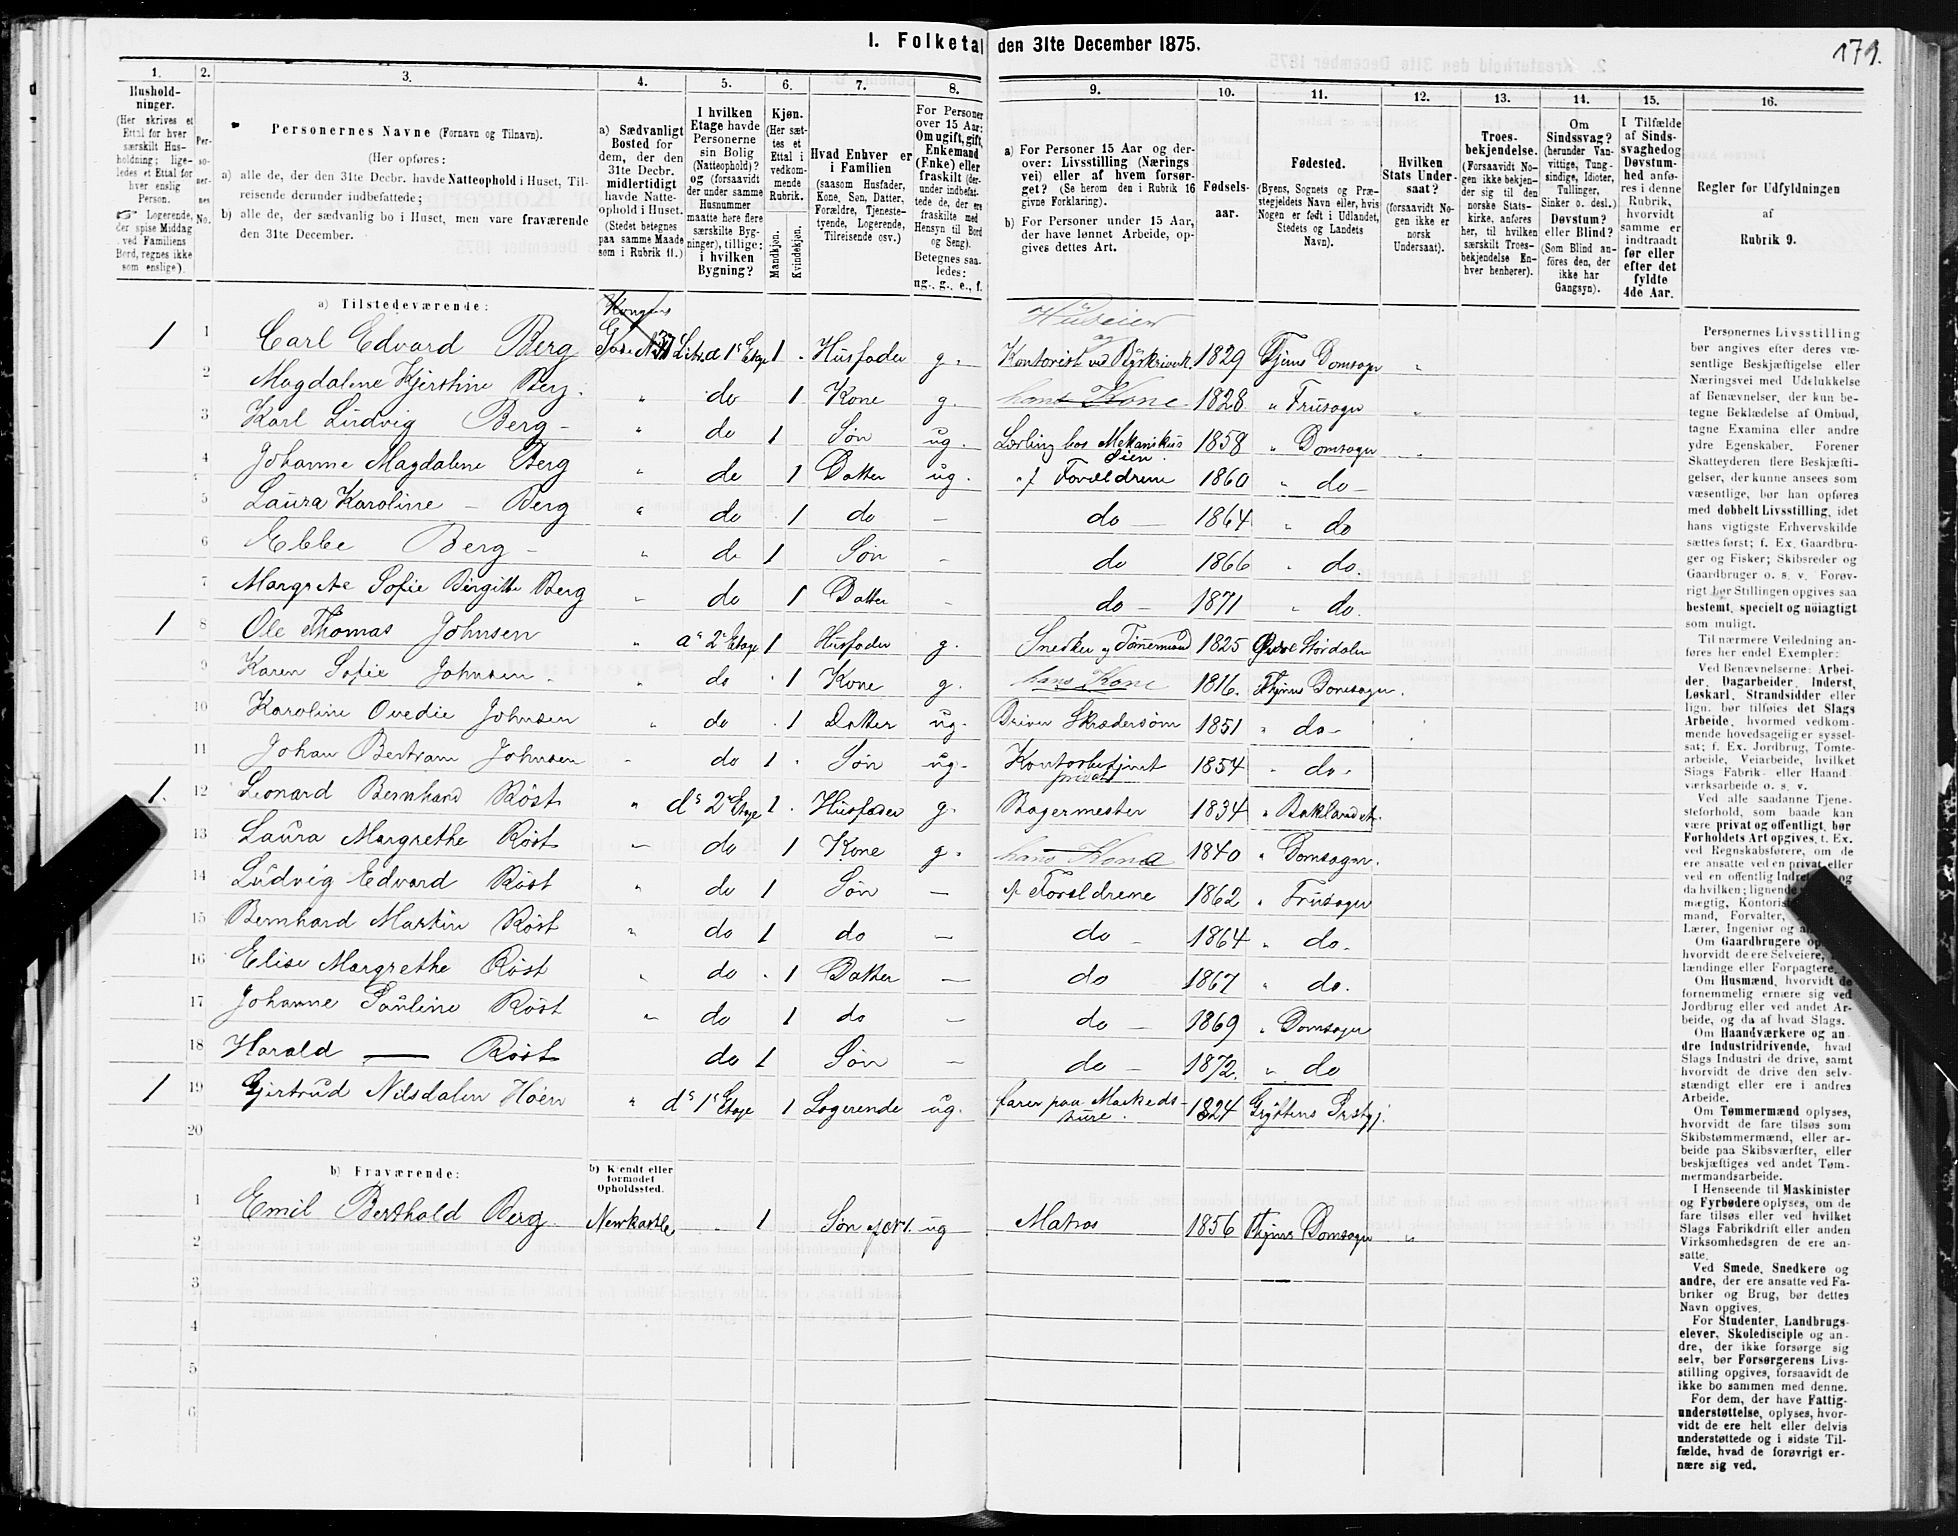 I. Folketal den 31te December 1875.
179.
1. 2. 3. 4. 5. 6. 7. 8. 9. 10. 11. 12. 13. 14. 15. 16.
Hushold-
ninger.
(Her skrives et
Ettal for hver
særskilt Hus-
holdning; lige-
ledes et Ettal for
hver enslig
Person.
☞ Logerende,
der spise Middag
ved Familiens
Bord, regnes ikke
som enslige).
Per-
so-
ner-
nes
No.
Personernes Navne (Fornavn og Tilnavn).
(Her opføres:
a) alle de, der den 31te Decbr. havde Natteophold i Huset, Til-
reisende derunder indbefattede;
b) alle de, der sædvanlig bo i Huset, men vare fraværende
den 31te December.
a) Sædvanligt
Bosted for
dem, der den
31te Decbr.
midlertidigt
havde Natte-
ophold i Huset.
(Stedet betegnes
paa samme Maade
som i Rubrik 11.)
I hvilken
Etage havde
Personerne
sin Bolig
(Natteophold)?
og (forsaavidt
der under samme
Husnummer
maatte høre flere
særskilte Byg-
ninger), tillige:
i hvilken
Bygning?
Kjøn.
(Her sæt-
tes et
Ettal i
vedkom-
mende
Rubrik.
Mandkjøn.
Kvindekjøn.
Hvad Enhver er
i Familien
(saasom Husfader,
Kone, Søn, Datter,
Forældre, Tjeneste-
tyende, Logerende,
Tilreisende osv.)
For Personer
over 15 Aar:
Om ugift, gift,
Enkemand
(Enke) eller
fraskilt (der-
under indbefat-
tede de, der ere
fraskilte med
Hensyn til Bord
og Seng).
Betegnes saa-
ledes:
ug., g., e., f.
a) For Personer 15 Aar og der-
over: Livsstilling (Nærings
vei) eller af hvem forsør-
get? (Se herom den i Rubrik 16
givne Forklaring).
b) For Personer under 15 Aar,
der have lønnet Arbeide, op-
gives dettes Art.
Fødsels-
aar.
Fødested.
(Byens, Sognets og Præ-
stegjeldets Navn eller, hvis
Nogen er født i Udlandet,
Stedets og Landets
Navn).
Hvilken
Stats Under-
saat?
(forsaavidt No-
gen ikke er
norsk
Undersaat).
Troes-
bekjendelse.
(Forsaavidt No-
gen ikke bekjen-
der sig til den
norske Stats-
kirke, anføres
her, til hvilken
særskilt Troes-
bekjendelse En-
hver henhører).
Om
Sindssvag?
(herunder Van-
vittige, Tung-
sindige, Idioter,
Tullinger,
Sinker o. desl.)
Døvstum?
eller Blind?
(Som Blind an-
føres den, der
ikke har
Gangsyn).
I Tilfælde
af Sinds-
svaghed og
Døvstum-
hed anfø-
res i denne
Rubrik,
hvorvidt
samme er
indtraadt
før eller
efter det
fyldte
4de Aar.
Regler for Udfyldningen
af
Rubrik 9.
a) Tilstedeværende:
Kongens
Huseier
1 1 Carl Edvard Berg Gade N 31 Litr. d 1s Etage 1 Husfader g. og Kontorist ved Byskriverk. 1829 Thjems Domsogn
2 Magdalene Kjerstine Berg do 1 Kone g. hans Kone 1828 " Frusogn
3 Karl Ludvig Berg " do 1 Søn ug. Lærling hos Mekanikus Øien 1858 " Domsogn
4 Johanne Magdalene Berg " do 1 Datter ug. af Forældrene 1860 " do
5 Laura Karoline Berg " do 1 do — do 1864 " do
6 Ebbe Berg " do 1 Søn — do 1866 " do.
7 Margrete Sofie Birgitte Berg " do 1 Datter — do 1871 " do.
1 8 Ole Thomas Johnsen " a 2 Etage 1 Husfader g. Snedker og Tømmermand 1825 Øvre Størdalen
9 Karen Sofie Johnsen " do 1 Kone g. hans Kone 1816. Thjems Domsogn.
10 Karoline Ovedie Johnsen " do 1 Datter ug. Driver Skrædersøm 1851 " do
11 Johan Bertram Johnsen " do 1 Søn ug. Kontorbetjent privat 1854 " do
1. 12 Leonard Bernhard Röst " d 2 Etage 1 Husfader g. Bagermester 1834 " Baklandet
13 Laura Margrethe Röst — do 1 Kone g. hans Kone 1840 " Domsogn.
14 Ludvig Edvard Röst " do 1 Søn — af Forældrene 1862 " Frusogn
15 Bernhard Martin Röst " do 1 do — do 1864 " do.
16 Elise Margrethe Röst " do 1 Datter — do 1867 " do.
17 Johanne Pauline Röst " do 1 do — do 1869 " Domsogn
18 Harald — Röst do 1 Søn — do 1872. " do
1 19 Gjertrud Nilsdalen Hoen " d 1 Etage 1 Logerende ug. farer paa Markeds- ture. 1824 Gryttens Prstgj.
20
b) Fraværende:
b) Kjendt eller
formodet
Opholdssted.
1 Emil Berthold Berg Newkastle 1 Søn af N1. ug Matros 1856 Thjems Domsogn "
2
3
4
5
6
Personernes Livsstilling
bør angives efter deres væ-
sentlige Beskjæftigelse eller
Næringsvei med Udelukkelse
af Benævnelser, der kun be-
tegne Beklædelse af Ombud,
tagne Examina eller andre
ydre Egenskaber. Forener
Skatteyderen flere Beskjæfti-
gelser, der kunne ansees som
væsentlige, bør han opføres
med dobbelt Livsstilling, idet
hans vigtigste Erhvervskilde
sættes først; f. Ex. Gaardbru-
ger og Fisker; Skibsreder og
Gaardbruger o. s. v. Forøv-
rigt bør Stillingen opgives saa
bestemt, specielt og nøiagtigt
som muligt.
Til nærmere Veiledning an-
føres her endel Exempler:
Ved Benævnelserne: Arbei-
der, Dagarbeider, Inderst,
Løskarl, Strandsidder eller
lign. bør tilføies det Slags
Arbeide, hvormed vedkom-
mende hovedsagelig er syssel-
sat; f. Ex. Jordbrug, Tomte-
arbeide, Veiarbeide, hvilket
Slags Fabrik- eller Haand-
værksarbeide o. s. v.
Ved alle saadanne Tjene-
steforhold, som baade kan
være privat og offentligt, bør
Forholdets Art opgives, t. Ex.
ved Regnskabsførere, om de
ere ansatte ved en privat eller
ved en offentlig Indret og
da hvilken; lignende
mægtig, Kontoris
mand, Forvalter,
Lærer, Ingeniør og
Om Gaardbrugere op
hvorvidt de ere Selveiere,
lændinge eller Forpagtere.
Om Husmænd, hvorvidt de
fornemmelig ernære sig ved
Jordbrug eller ved andet Ar-
beide, og da af hvad Slags.
Om Haandværkere og an-
dre Industridrivende, hvad
Slags Industri de drive, samt
hvorvidt de drive den selv-
stændigt eller ere i andres
Arbeide.
Om Tømmermænd oplyses,
hvorvidt de fare tilsøs som
Skibstømmermænd, eller ar-
beide paa Skibsværfter, eller
beskjæftiges ved andet Tøm-
mermandsarbeide.
I Henseende til Maskinister
og Fyrbødere oplyses, om de
fare tilsøs eller ved hvilket
Slags Fabrikdrift eller anden
Virksomhedsgren de ere an-
satte.
Ved Smede, Snedkere og
andre, der ere ansatte ved Fa-
briker og Brug, bør dettes
Navn opgives.
For Studenter, Landbrugs-
elever, Skoledisciple og an-
dre, der ikke forsørge sig
selv, bør Forsørgerens Livs-
stilling opgives, forsaavidt de
ikke bo sammen med denne.
For dem, der have Fattig-
understøttelse, oplyses, hvor-
vidt de ere helt eller delvis
understøttede og i sidste Til-
fælde, hvad de forøvrigt er-
nære sig ved.